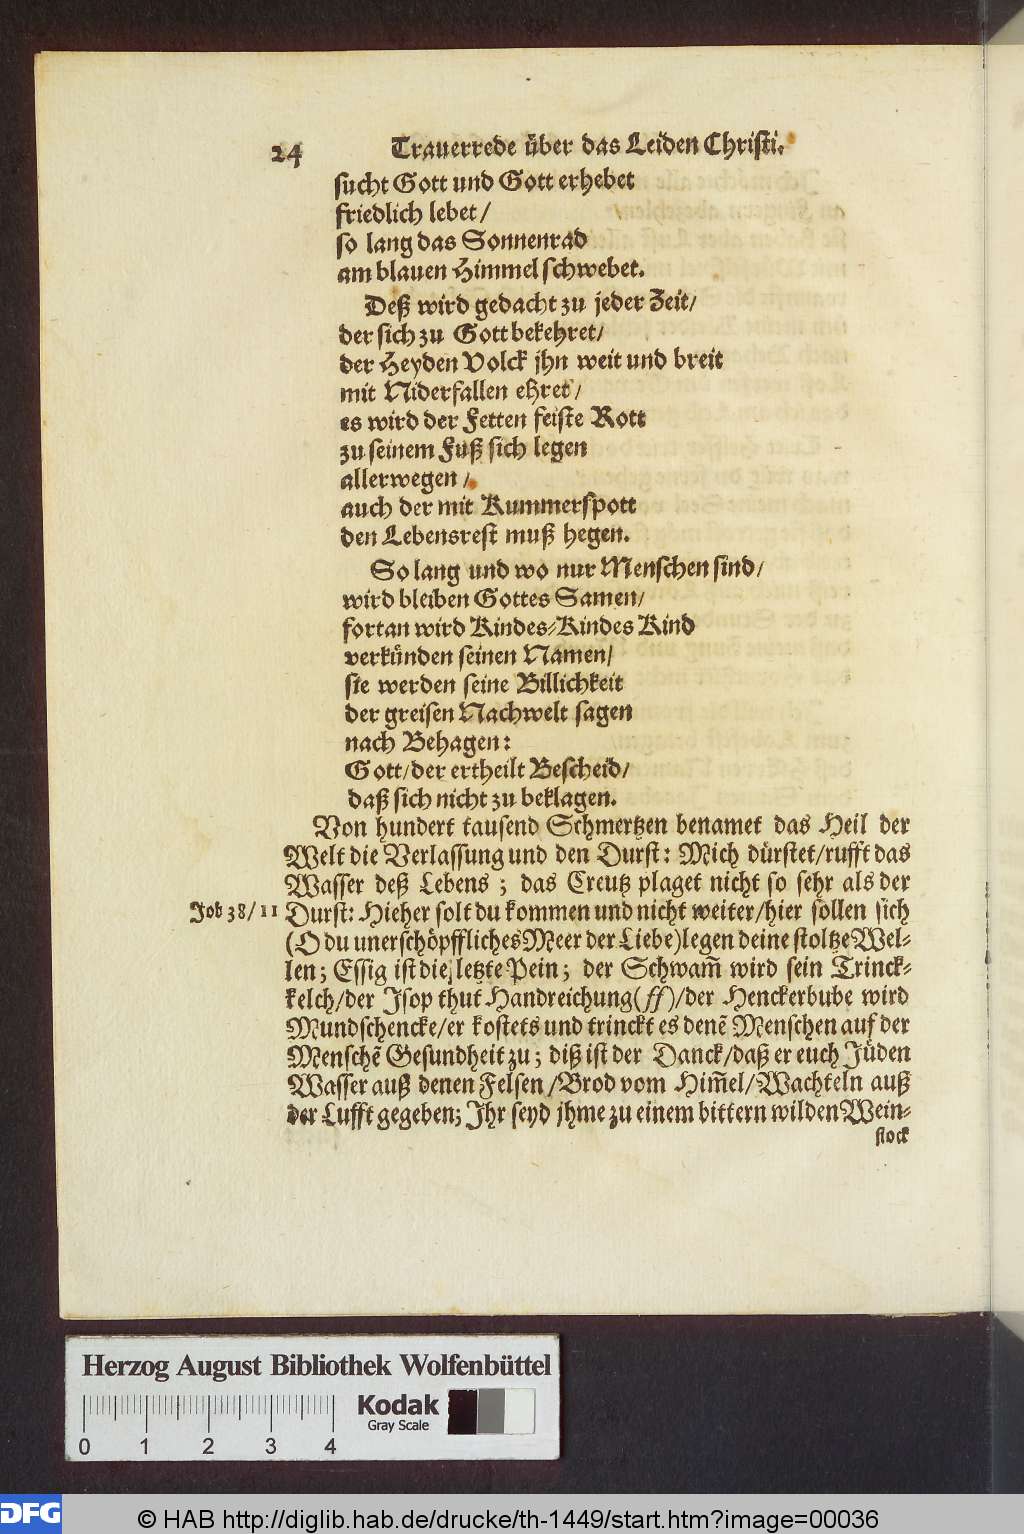 24 Trauerrede über das Leiden Christi.
sucht Gott und Gott erhebet
friedlich lebet/
so lang das Sonnenrad
am blauen Himmel schwebet.
Deß wird gedacht zu jeder Zeit/
der sich zu Gott bekehret/
der Heyden Volck jhn weit und breit
mit Niderfallen ehret/
es wird der Fetten feiste Rott
zu seinem Fuß sich legen
allerwegen/
auch der mit Kummerspott
den Lebensrest muß hegen.
So lang und wo nur Menschen sind/
wird bleiben Gottes Samen/
fortan wird Kindes-Kindes Kind
verkünden seinen Namen/
sie werden seine Billichkeit
der greisen Nachwelt sagen
nach Behagen:
Gott/der ertheilt Bescheid/
daß sich nicht zu beklagen.
Von hundert tausend Schmertzen benamet das Heil der
Welt die Verlassung und den Durst: Mich dürstet/rufft das
Wasser deß Lebens; das Creutz plaget nicht so sehr als der
Job 38/11 Durst: Hieher solt du kommen und nicht weiter/hier sollen sich
(O du unerschöpffliches Meer der Liebe) legen deine stoltze Wel-
len; Essig ist die letzte Pein; der Schwam̃ wird sein Trinck-
kelch/der Isop thut Handreichung(ff)/der Henckerbube wird
Mundschencke/er kostets und trinckt es denẽ Menschen auf der
Menschẽ Gesundheit zu; diß ist der Danck/daß er euch Jüden
Wasser auß denen Felsen/Brod vom Him̃el/Wachteln auß
der Lufft gegeben; Ihr seyd jhme zu einem bittern wilden Wein-
stock
Herzog August Bibliothek Wolfenbüttel
Kodak
Gray Scale
0 1 2 3 4
DFG © HAB http://diglib.hab.de/drucke/th-1449/start.htm?image=00036